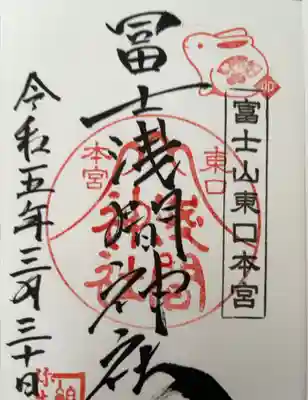 卯
富士山東口本宮
冨士浅間神社
東口
本宮
浅間神社
令和五年三月三十日